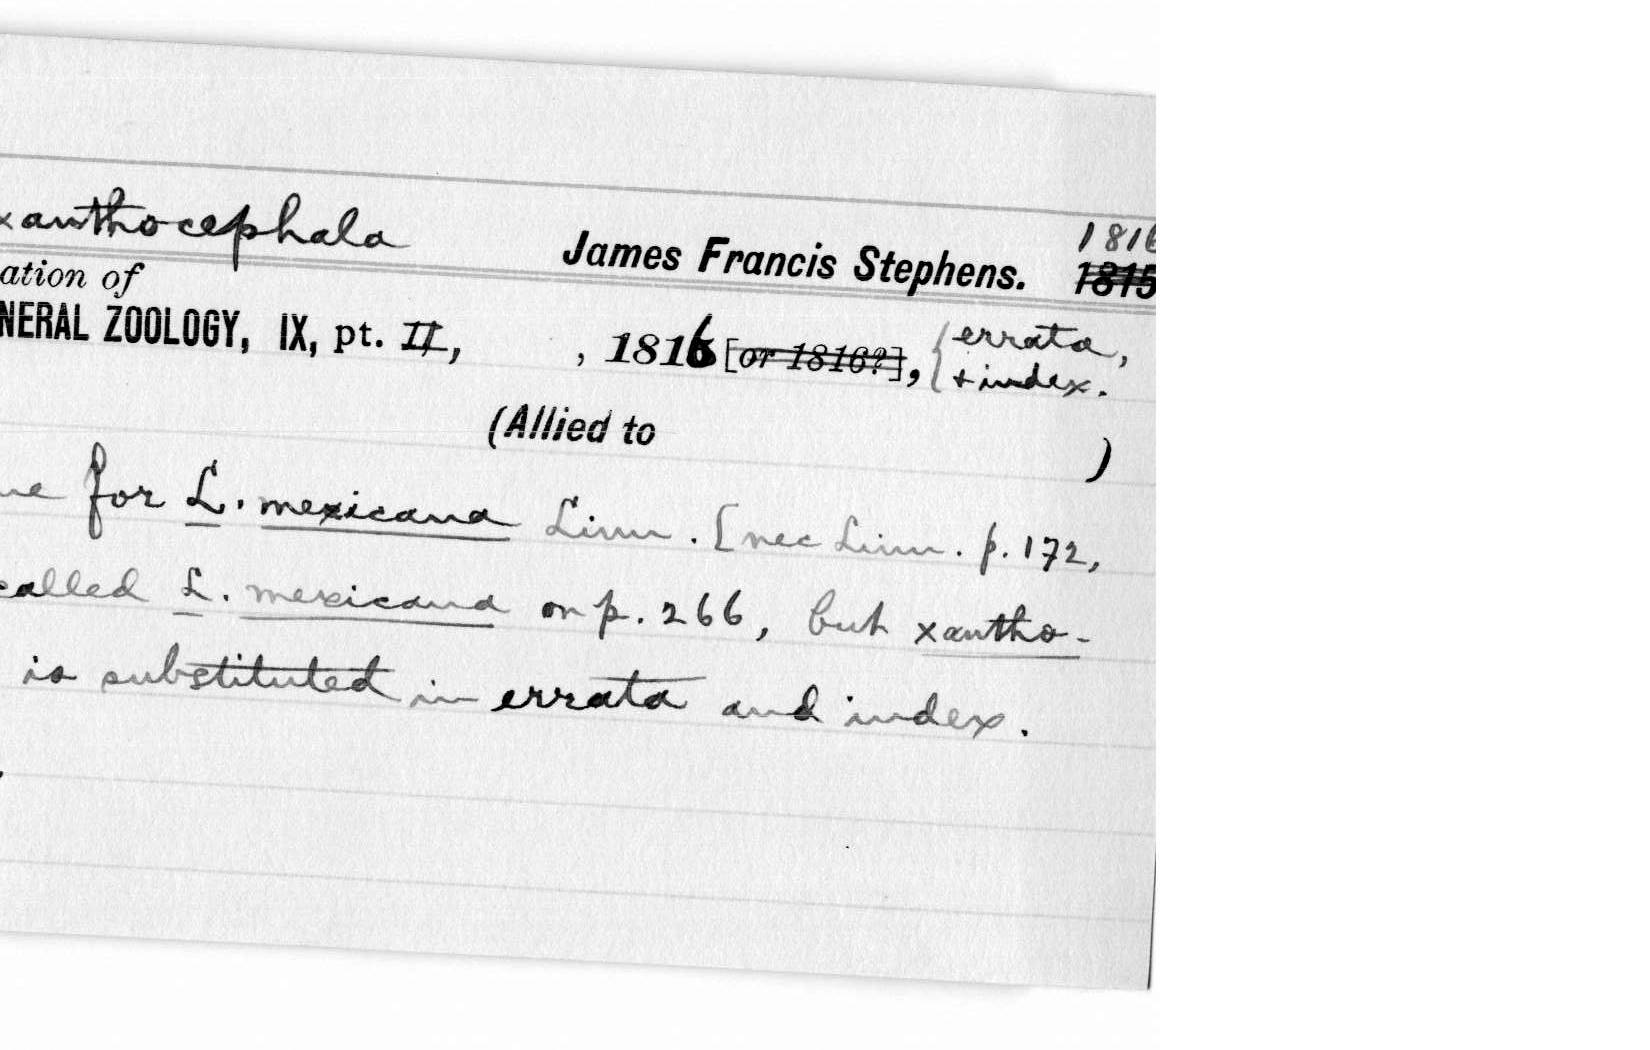 xanthocephala
James Francis Stephens. 1816
1815
ation of
NERAL ZOOLOGY, IX, pt. II, , 1816 [or 1816?], { errata,
+ index.
(Allied to )
ue for L. mexicana Linn. [nec Linn. p. 172,
called L. mexicana on p. 266, but xantho-
is substituted in errata and index.